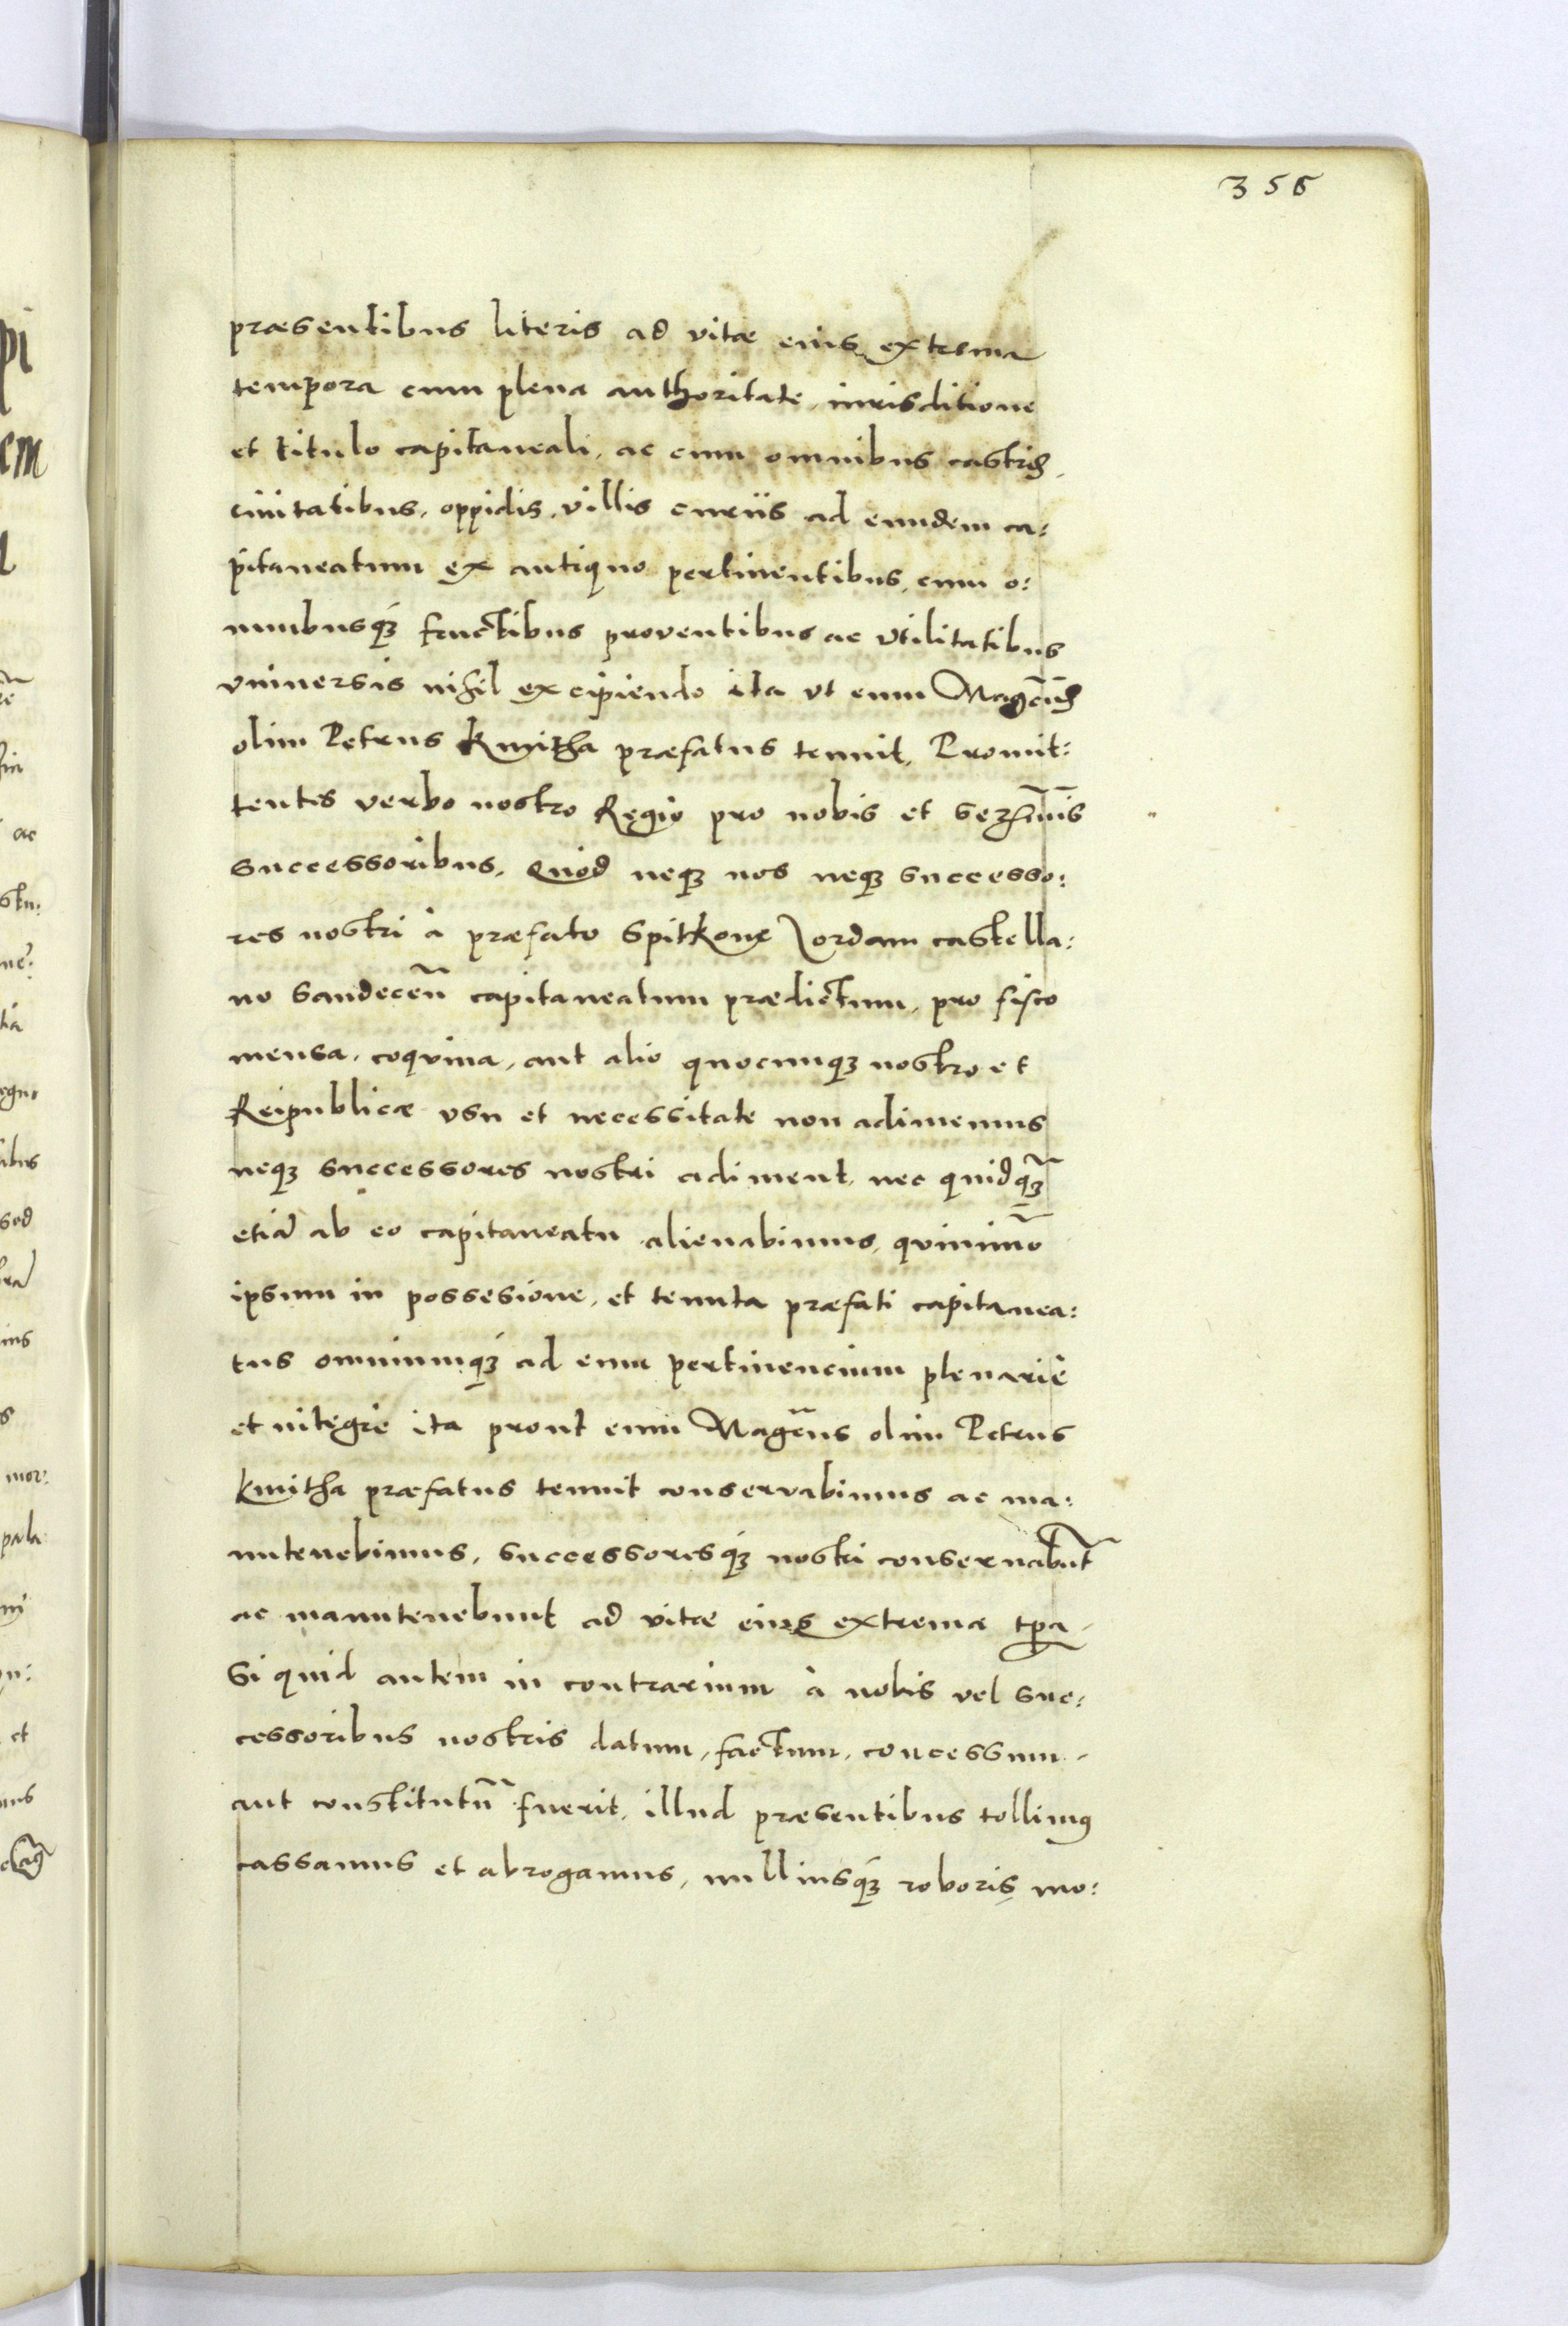 356
præsentibus literis ad vitæ eius extrema
tempora cum plena authoritate, iurisditione
et titulo capitaneali, ac cum omnibus castris,
ciuitatibus, oppidis, villis curiis ad eundem ca:
pitaneatum ex antiquo pertinentibus, cum o:
mnibusqꝫ fructibus proventibus ac vtilitatibus
vniuersis nihil excipiendo ita vt eum Magcus
olim Petrus Kmitha præfatus tenuit, Promit:
tentes verbo nostro Regio pro nobis et serßmis
successoribus, Quod neqꝫ nos neqꝫ successo:
res nostri à præfato Spitkone Jordam castella:
no Sandeceñ capitaneatum prædictum, pro fisco
mensa, coquina, aut alio quocunqꝫ nostro et
Reipublicæ vsu et necessitate non adimemus
neqꝫ successores nostri adiment, nec quidq̃ꝫ
etiã ab eo capitaneatu alienabimus, quinimõ
ipsum in possesione, et tenuta præfati capitanea:
tus omniumqꝫ ad eum pertinencium plenariè
et integrè ita prout eum Magcus olim Petrus
Kmitha præfatus tenuit conservabimus ac ma:
nutenebimus, successoresqꝫ nostri conseruabũt
ac manutenebunt ad vitæ eius extrema tpa,
Si quid autem in contrarium à nobis vel suc:
cessoribus nostris datum, factum, concessum,
aut constitutũ fuerit, illud præsentibus tollimus
cassamus et abrogamus, nulliusqꝫ roboris mo: